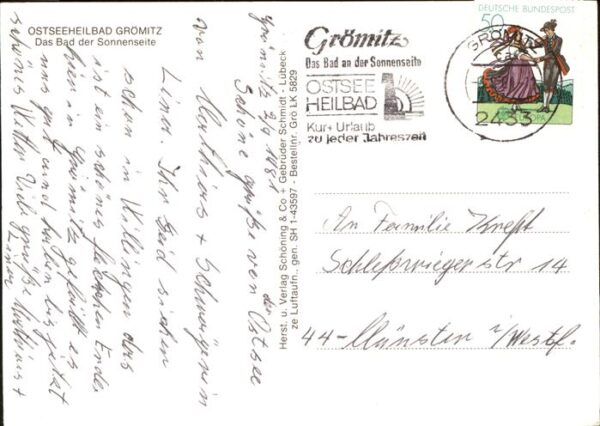 OSTSEEHEILBAD GRÖMITZ
Das Bad der Sonnenseite
Grömitz 2/9 1981
Schöne Grüße von der Ostsee
von Mathias + Schwägerin
Lina. Ihr seid sicher
schon in Willingen das
ist schönes
hier in Grömitz gefällt es
uns gut und haben bis jetzt
schönes Wetter Viele Grüße Mathias +
Lina
Herst. u. Verlag Schöning & Co + Gebrüder Schmidt - Lübeck
ze Luftaufn., gen. SH 1-43597 - Bestellnr. Grö LK 5829
Grömitz
Das Bad an der Sonnenseite
OSTSEE
HEILBAD
Kur + Urlaub
zu jeder Jahreszeit
GRÖMITZ
2433
DEUTSCHE BUNDESPOST
50
An Familie Kreft
Schleswiger str 14
44-Münster i/Westf.